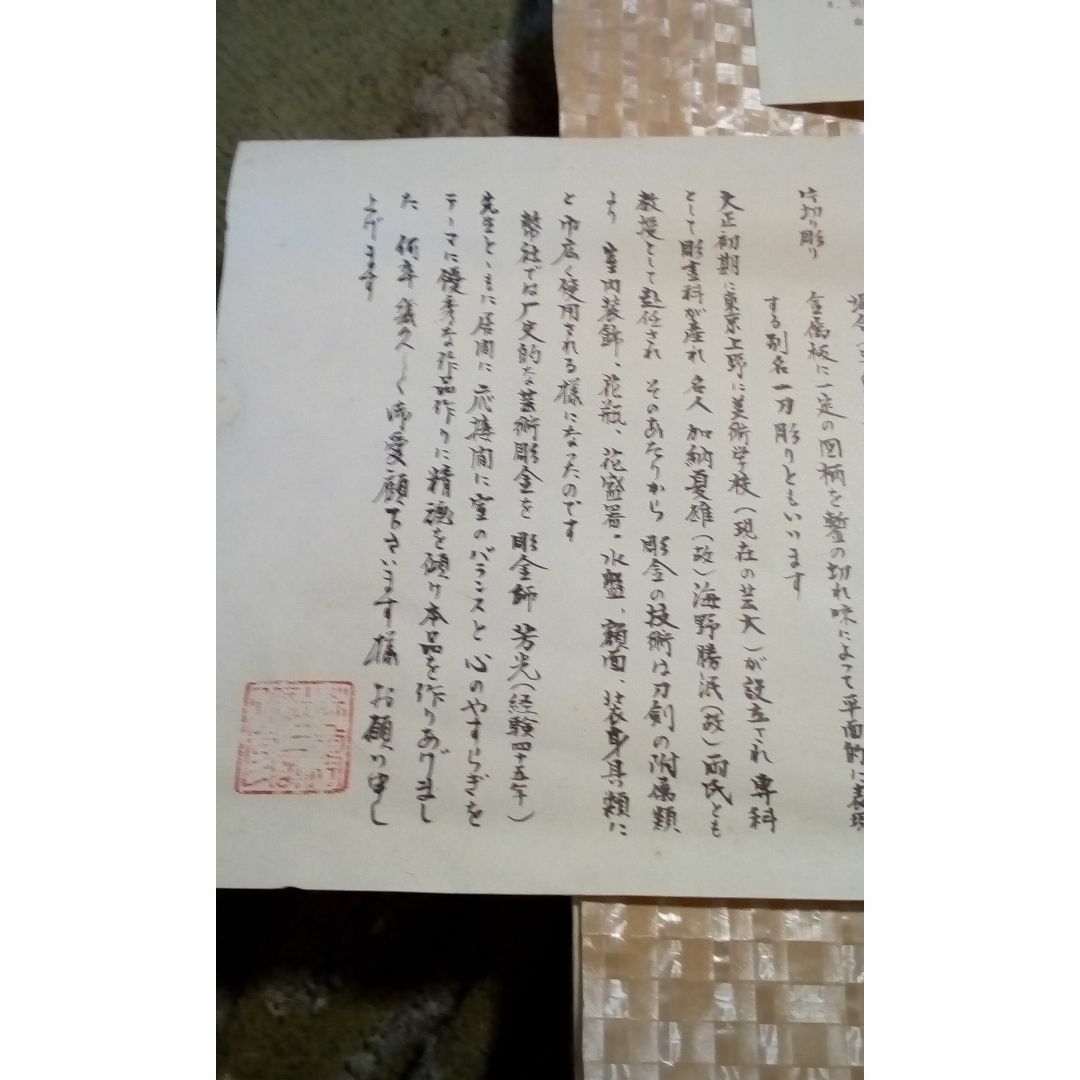 片切り彫り
金属板に一定の図柄を鏨の切れ味によって平面的に表現
する別名一刀彫りともいいます
大正初期に東京上野に美術学校(現在の芸大)が設立され 専科
として彫金科が産れ 名人 加納夏雄(故)海野勝珉(故)両氏とも
教授として赴任され そのあたりから 彫金の技術は刀剣の附属類
より 室内装飾、花瓶、花盛器、水盤、額面、装身具類に
と巾広く使用される様になったのです
弊社では厂史的な芸術彫金を 彫金師 芳光(経験四十五年)
先生とゝもに居間に 応接間に室のバランスと心のやすらぎを
テーマに優秀な作品作りに精魂を傾け本品を作りあげまし
た 何卒 幾久しく御愛顧下さいます様 お願い申し
上げます